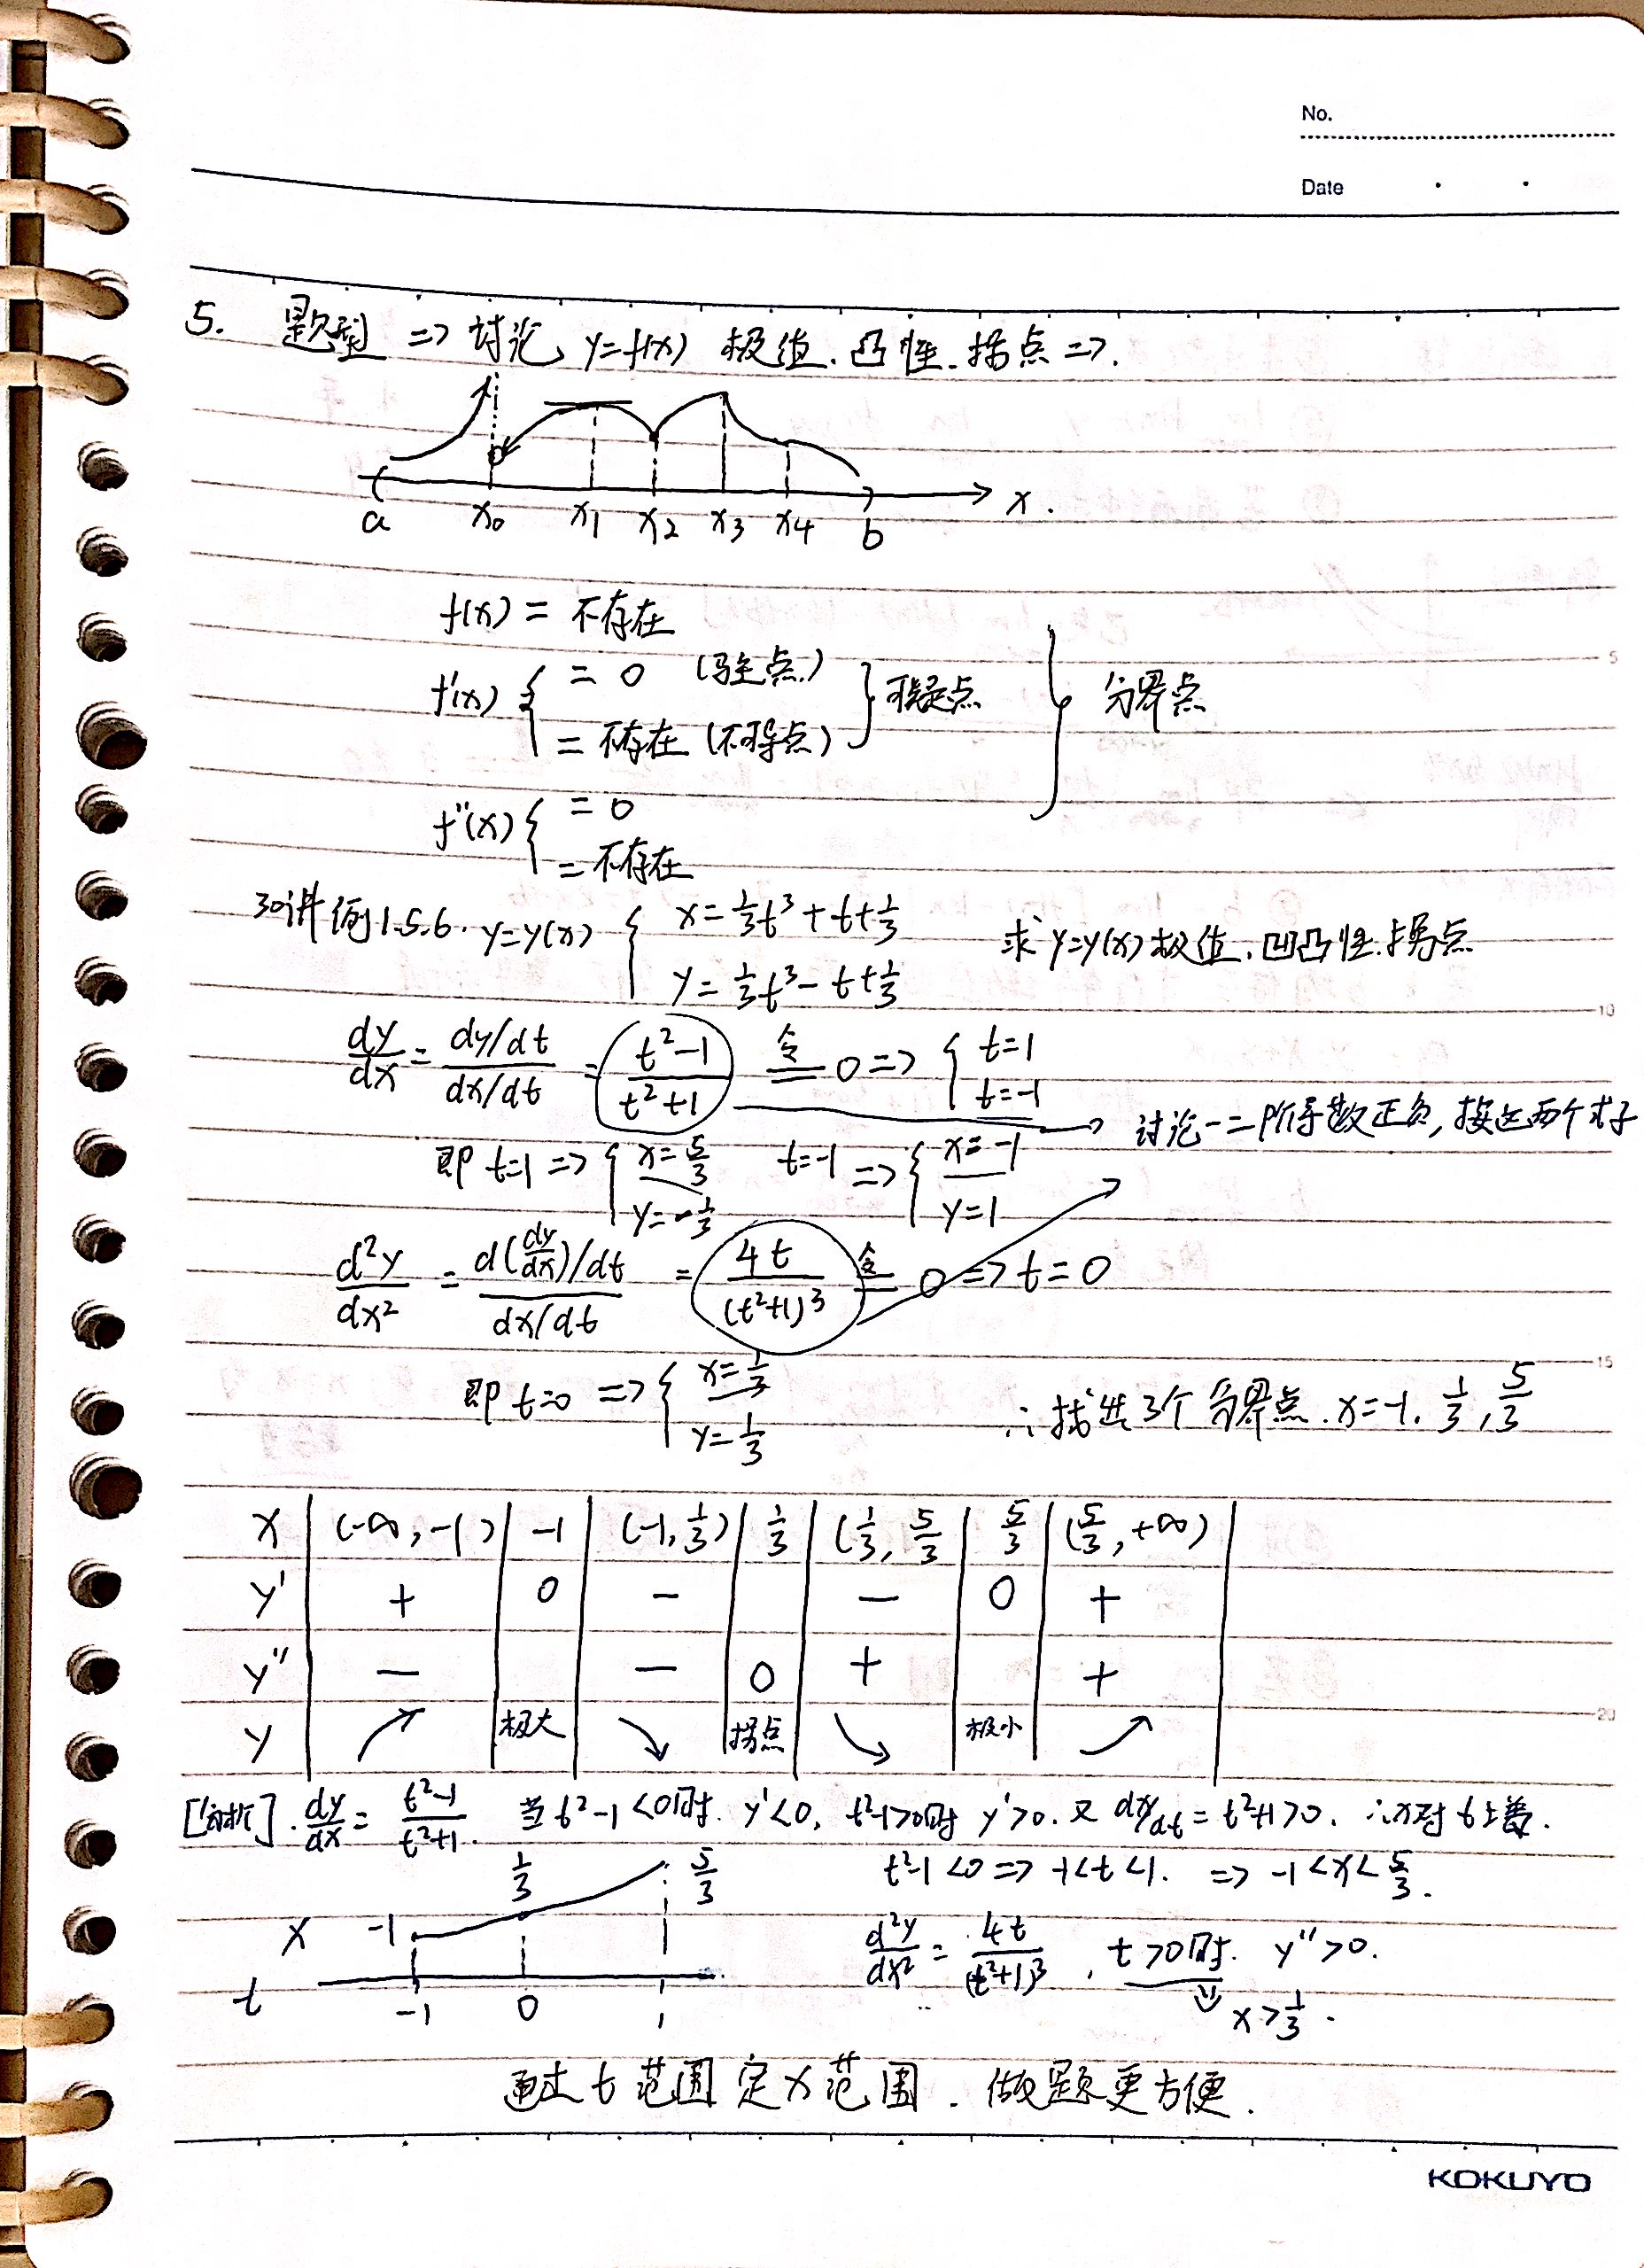 No.
Date
5. 题型 => 讨论 y=f(x) 极值.凸性.拐点 =>.
a x₀ x₁ x₂ x₃ x₄ b x.
f(x) = 不存在
f'(x) { = 0 (驻点)
= 不存在 (不可导点) } 可疑点 } 分界点
f''(x) { = 0
= 不存在
30讲 例1.5.6. y=y(x) { x=⅓t³+t+⅓ 求 y=y(x) 极值.凹凸性.拐点
y=⅓t³-t+⅓
dy/dx = (dy/dt)/(dx/dt) = (t²-1)/(t²+1) 令= 0 => { t=1
t=-1
讨论一二阶导数正负,接这两个式子
即 t=1 => { x=5/3 t=-1 => { x=-1
y=-⅓ y=1
d²y/dx² = (d(dy/dx)/dt)/(dx/dt) = 4t/(t²+1)³ 令= 0 => t=0
即 t=0 => { x=⅓ ∴找出3个分界点.x=-1, ⅓, 5/3
y=⅓
x | (-∞,-1) | -1 | (-1,⅓) | ⅓ | (⅓, 5/3 | 5/3 | (5/3, +∞) |
y' | + | 0 | - | | - | 0 | + |
y'' | - | | - | 0 | + | | + |
y | ↗ | 极大 | ↘ | 拐点 | ↘ | 极小 | ↗ |
[分析]. dy/dx = (t²-1)/(t²+1). 当 t²-1<0时. y'<0, t²-1>0时 y'>0. 又 dx/dt = t²+1>0. ∴x对t单增.
t²-1<0 => -1<t<1. => -1<x<5/3.
x -1 ⅓ 5/3
d²y/dx² = 4t/(t²+1)³ , t>0时. y''>0.
t -1 0 1
⇓ x>⅓.
通过 t 范围 定 x 范围. 做题更方便.
KOKUYO